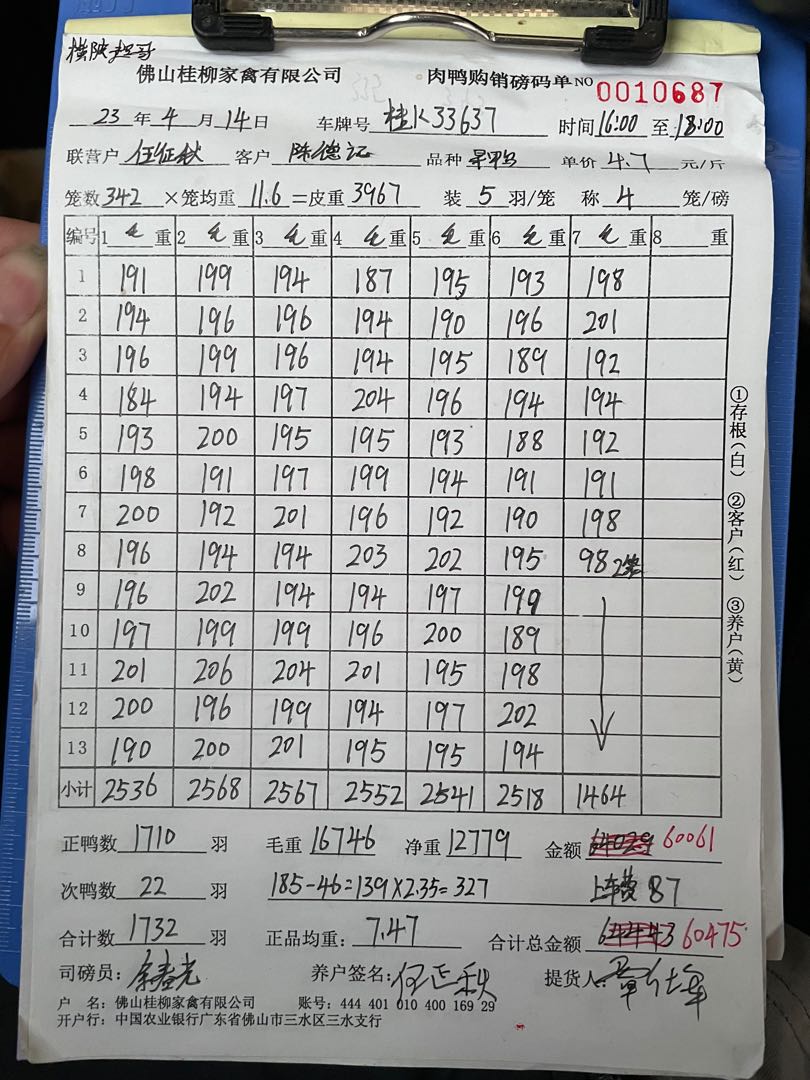 横陂赵哥
佛山桂柳家禽有限公司 肉鸭购销磅码单 NO 0010687
23 年 4 月 14 日 车牌号 桂K33637 时间 16:00 至 18:00
联营户 任征秋 客户 陈德记 品种 单价 4.7 元/斤
笼数 342 ×笼均重 11.6 =皮重 3967 装 5 羽/笼 称 4 笼/磅
编号 1 毛 重 2 毛 重 3 毛 重 4 毛 重 5 毛 重 6 毛 重 7 毛 重 8 重
1 191 199 194 187 195 193 198
2 194 196 196 194 190 196 201
3 196 199 196 194 195 189 192
4 184 194 197 204 196 194 194
5 193 200 195 195 193 188 192
6 198 191 197 199 194 191 191
7 200 192 201 196 192 190 198
8 196 194 194 203 202 195 98 2笼
9 196 202 194 194 197 199
10 197 199 199 196 200 189
11 201 206 204 201 195 198
12 200 196 199 194 197 202
13 190 200 201 195 195 194
小计 2536 2568 2567 2552 2541 2518 1464
正鸭数 1710 羽 毛重 16746 净重 12779 金额 60061
次鸭数 22 羽 185-46=139×2.35=327 上车费 87
合计数 1732 羽 正品均重: 7.47 合计总金额 60475
司磅员: 养户签名: 提货人:
户 名: 佛山桂柳家禽有限公司 账号: 444 401 010 400 169 29
开户行: 中国农业银行广东省佛山市三水区三水支行
①存根(白) ②客户(红) ③养户(黄)